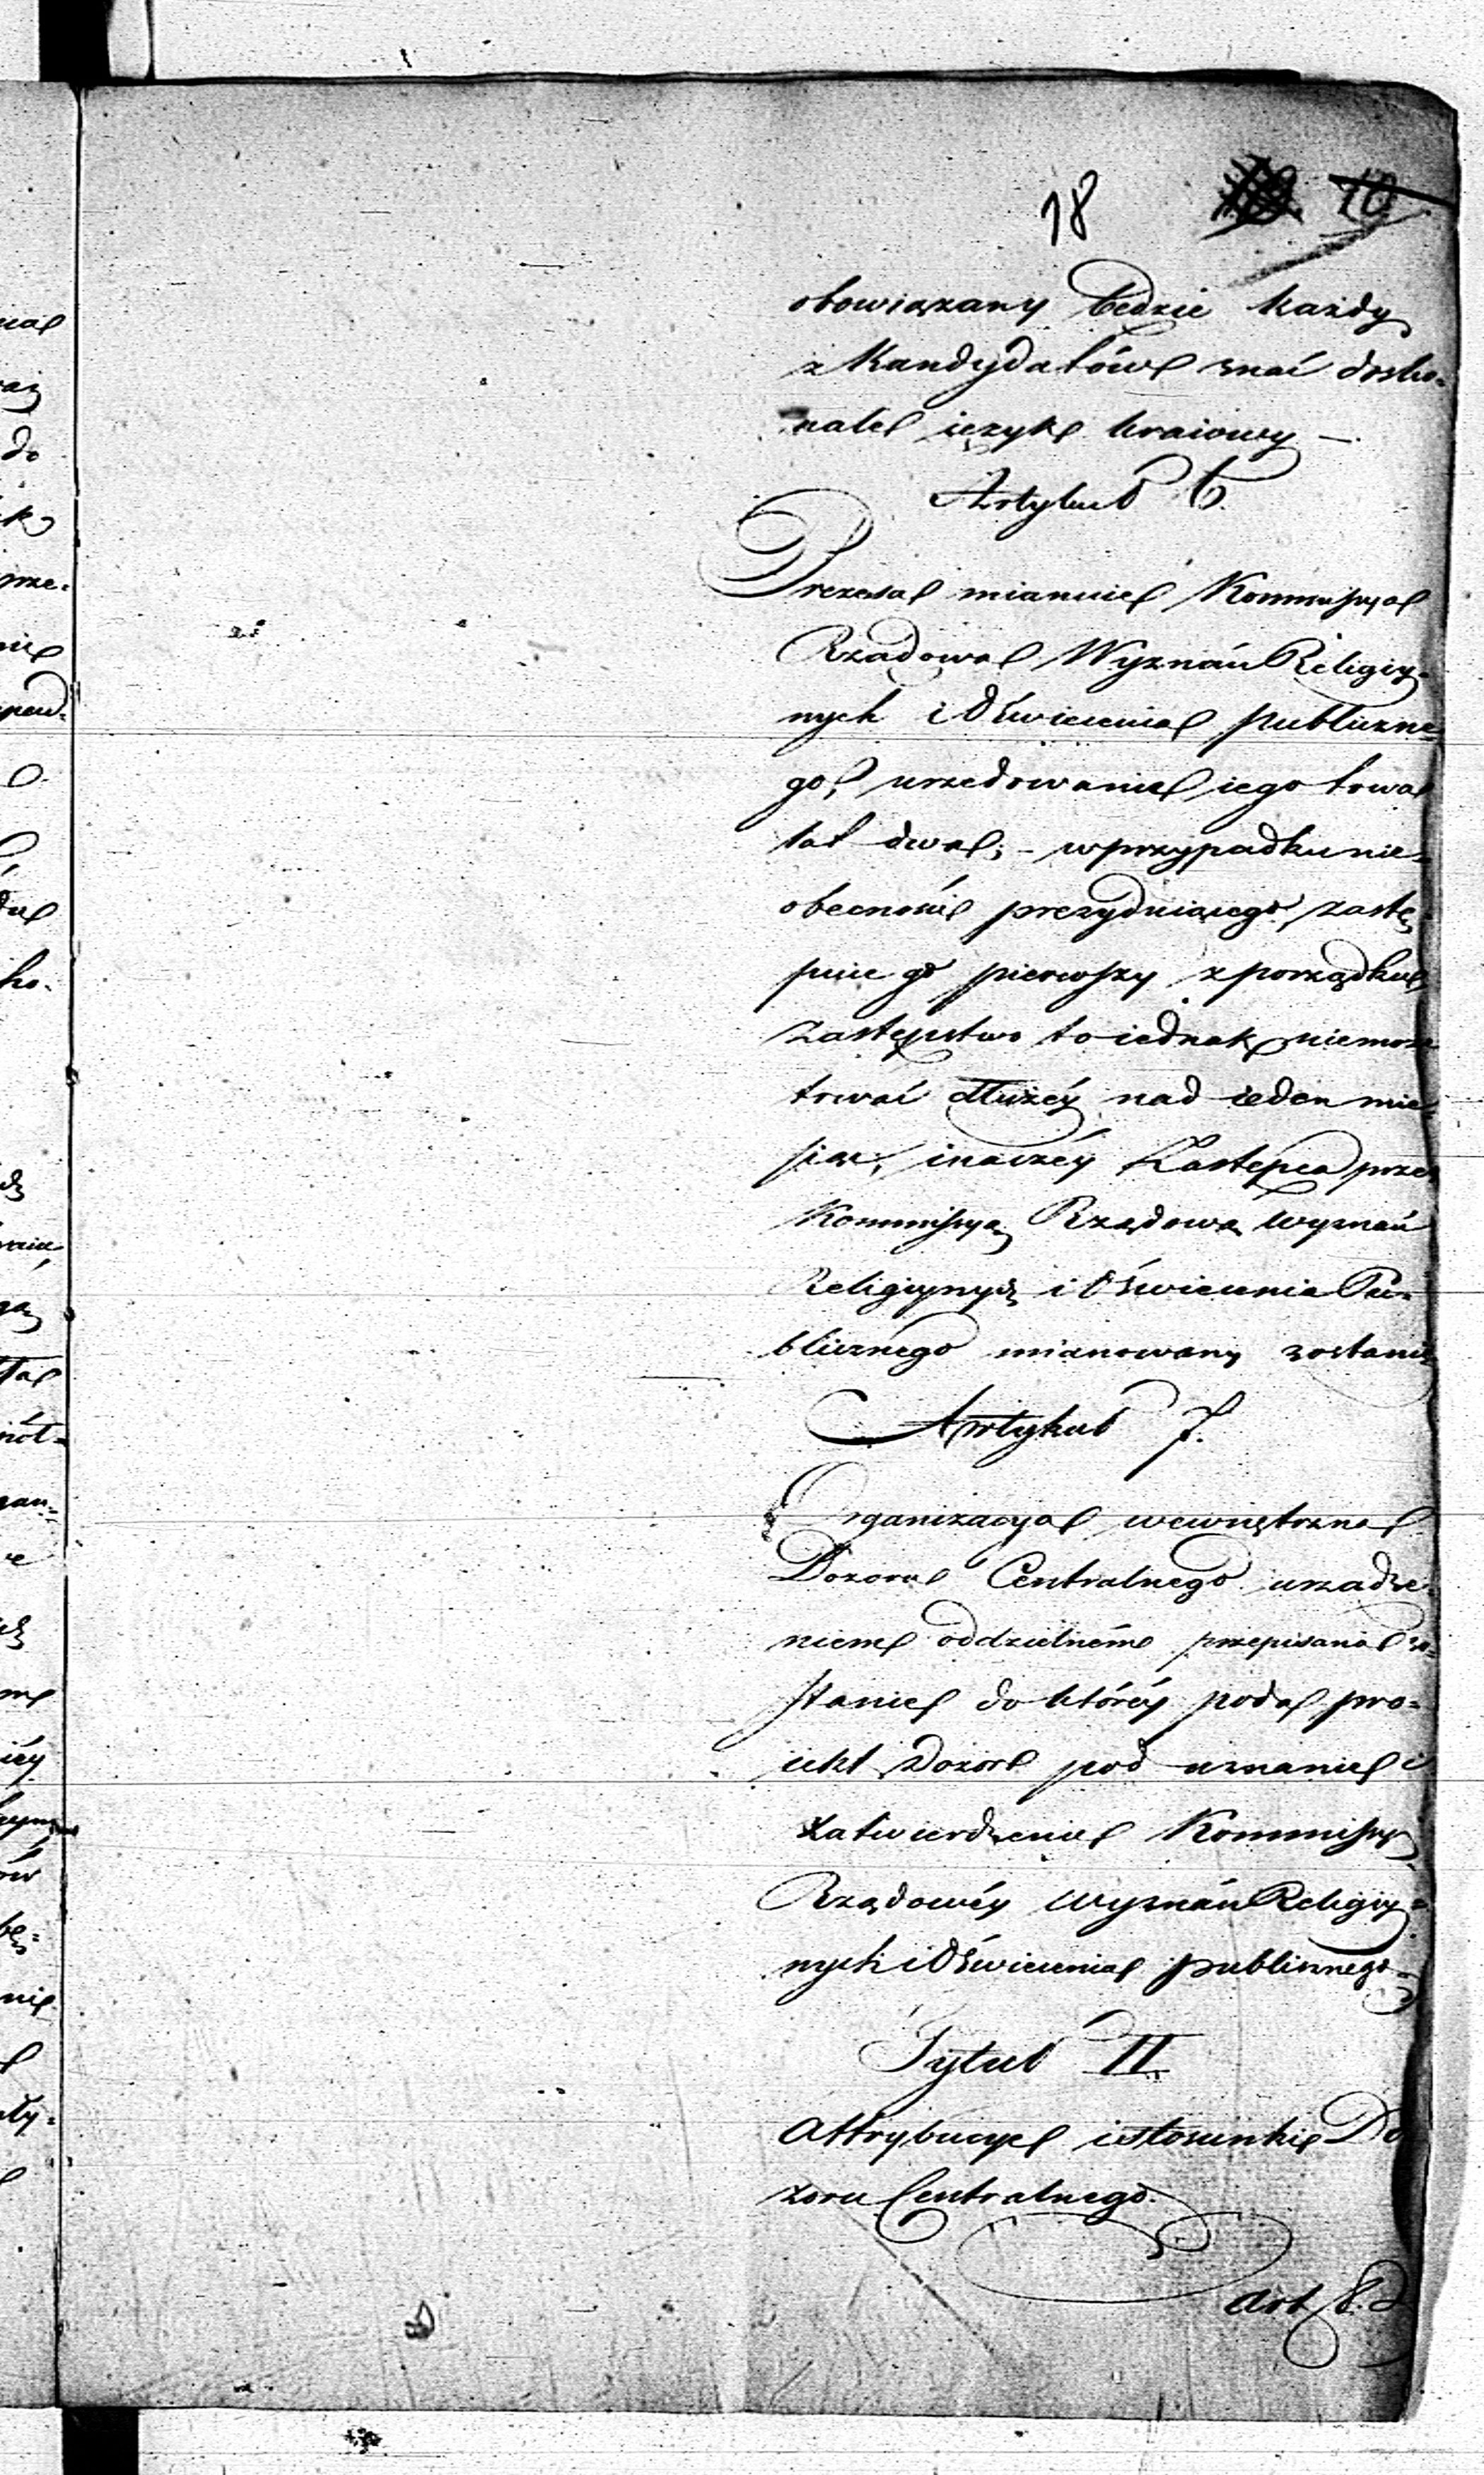 18 10
obowiązany będzie każdy
z Kandydatów znać dosko-
nale ięzyk kraiowy —.
Artykuł 6.
Prezesa mianuie Kommissya
Rządowa Wyznań Religiy-
nych i Oświecenia publiczne-
go, urzędowanie iego trwa
lat dwa; – w przypadku nie-
obecności prezyduiącego, zastę-
puie go pierwszy z porządku
Zastępstwo to iednak niemoże
trwać dłużéy nad ieden mie-
siąc, inaczéy Zastępca przez
Kommissyą Rządową Wyznań
Religiynych i Oświecenia Pu-
blicznego mianowany zostanie
Artykuł 7.
Organizacya wewnętrzna
Dozoru Centralnego urządze-
niem oddzielném przepisana zo-
stanie do któréy poda pro-
iekt Dozór pod uznanie i
zatwierdzenie Kommissyi
Rządowéy Wyznań Religiy-
nych i Oświecenia publicznego.
Tytuł II.
Attrybucye i stosunki Do
zoru Centralnego.
Art 8.